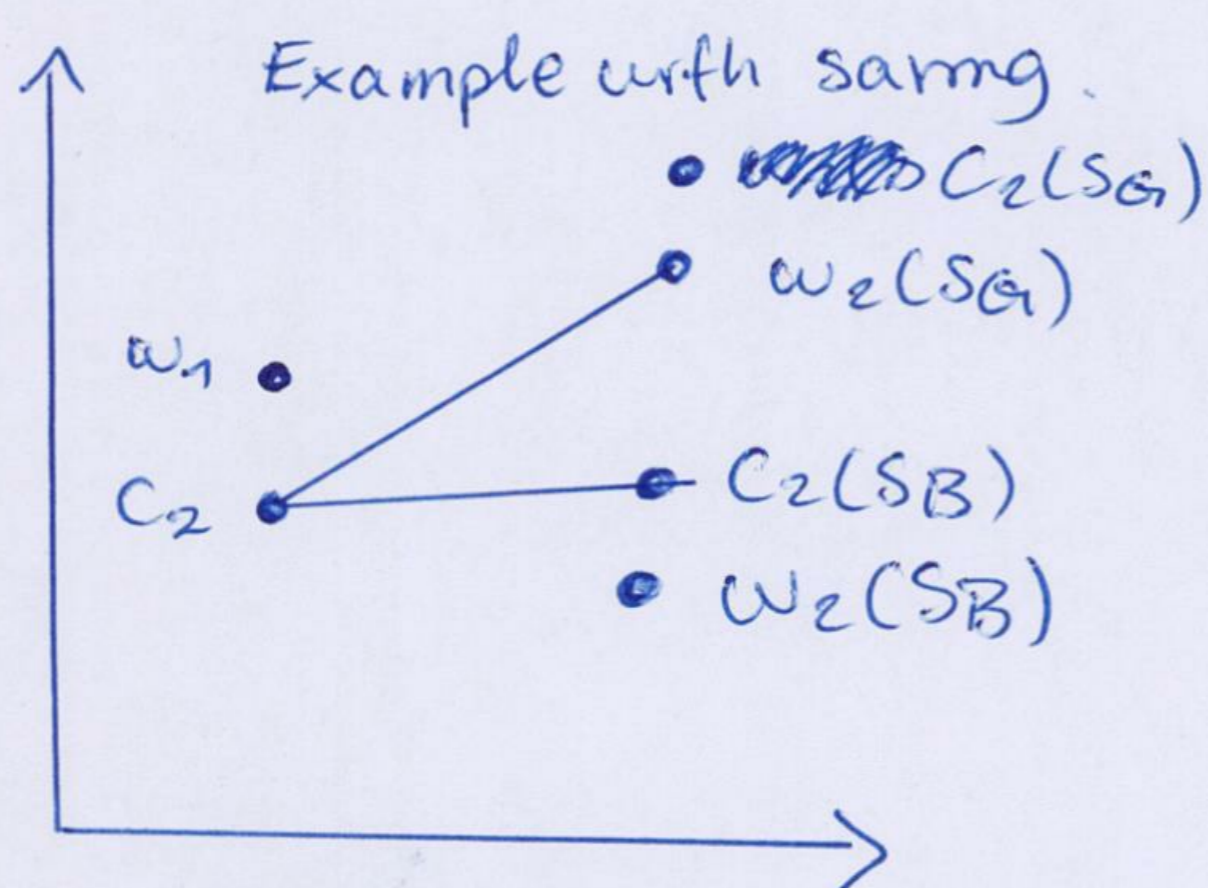 Example with saving.
C₂(SG)
w₂(SG)
w₁
C₂
C₂(SB)
w₂(SB)